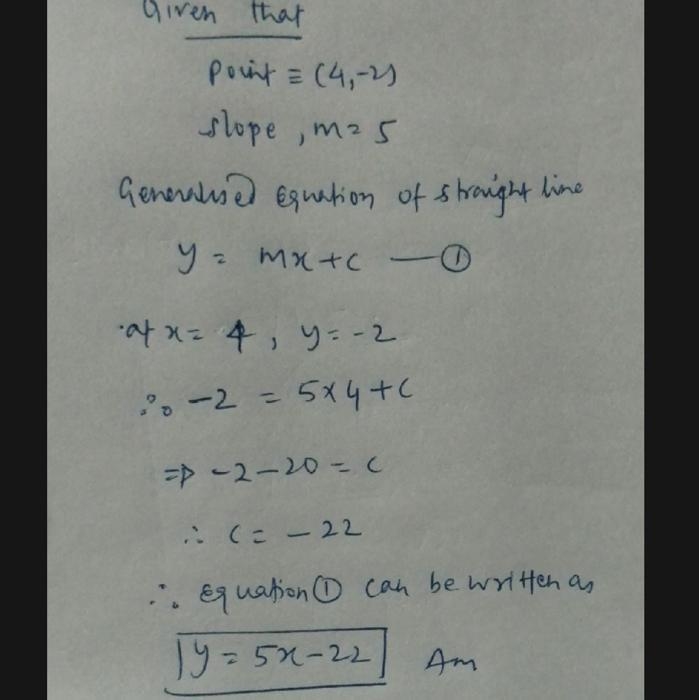 Given that
point ≡ (4,-2)
slope, m = 5
Generalised Equation of straight line
y = mx + c — ①
at x = 4, y = -2
∴ -2 = 5×4 + c
⇒ -2 - 20 = c
∴ c = - 22
∴ Equation ① can be written as
y = 5x - 22 Ans